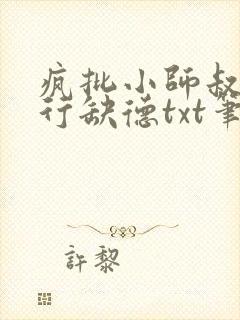 疯批小師叔
行缺德txt筆
許黎